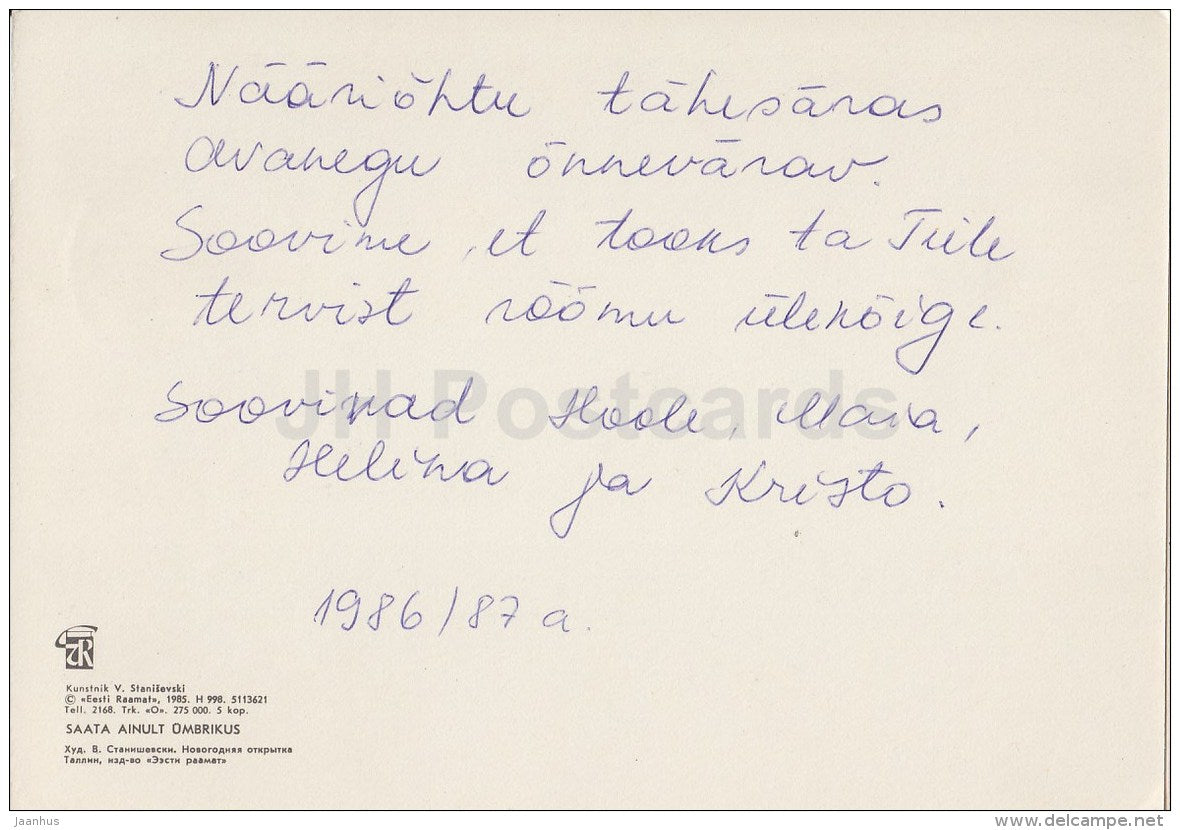 Nääriõhtu tähesäras
avanegu õnnevärav.
Soovime, et tooks ta Teile
tervist rõõmu ülekõige.
Soovivad Hoole, Maia,
Helina ja Kristo.
1986/87 a.
JH Postcards
ER
Kunstnik V. Staniševski
© «Eesti Raamat», 1985. H 998. 5113621
Tell. 2168. Trk. «O». 275 000. 5 kop.
SAATA AINULT ÜMBRIKUS
Худ. В. Станишевски. Новогодняя открытка
Таллин, изд-во «Ээсти раамат»
Jaanhus
www.delcampe.net